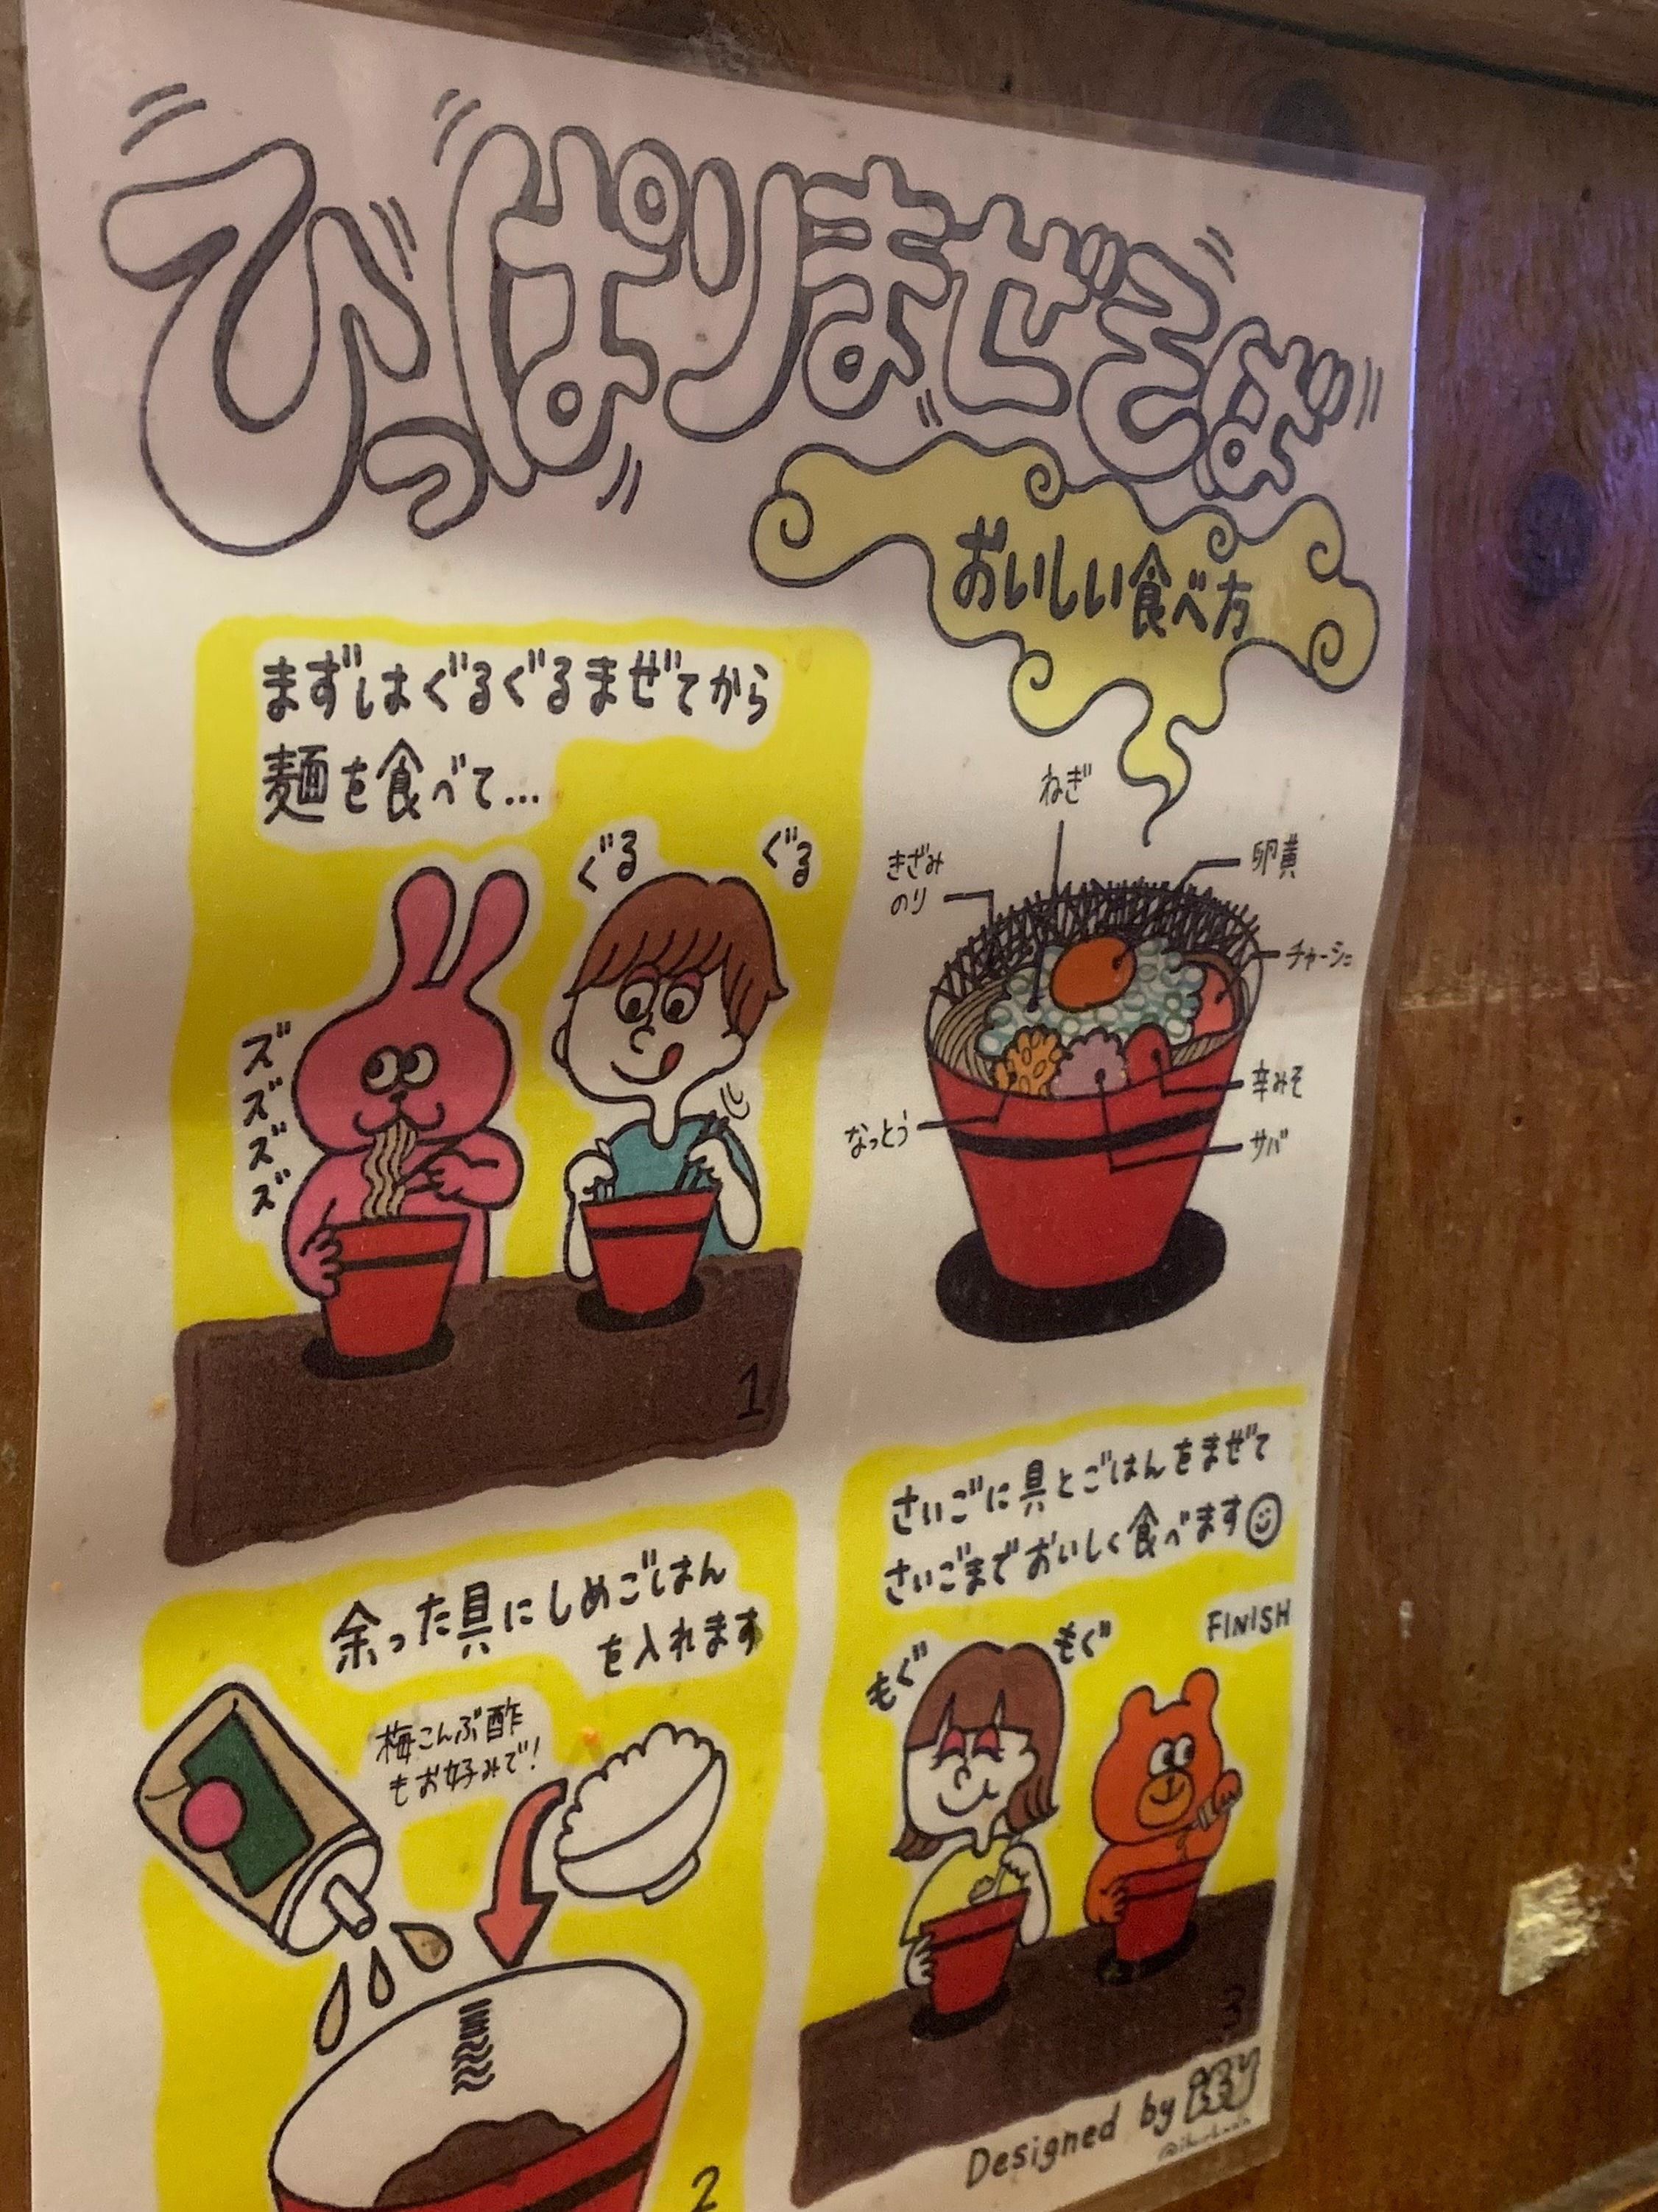 ひっぱりまぜそば
おいしい食べ方
まずはぐるぐるまぜてから
麺を食べて...
ぐる
ぐる
ズズズズ
1
ねぎ
きざみ
のり
卵黄
チャーシュー
辛みそ
サバ
なっとう
余った具にしめごはん
を入れます
梅こんぶ酢
もお好みで!
2
さいごに具とごはんをまぜて
さいごまでおいしく食べます☺
FINISH
もぐ
もぐ
3
Designed by